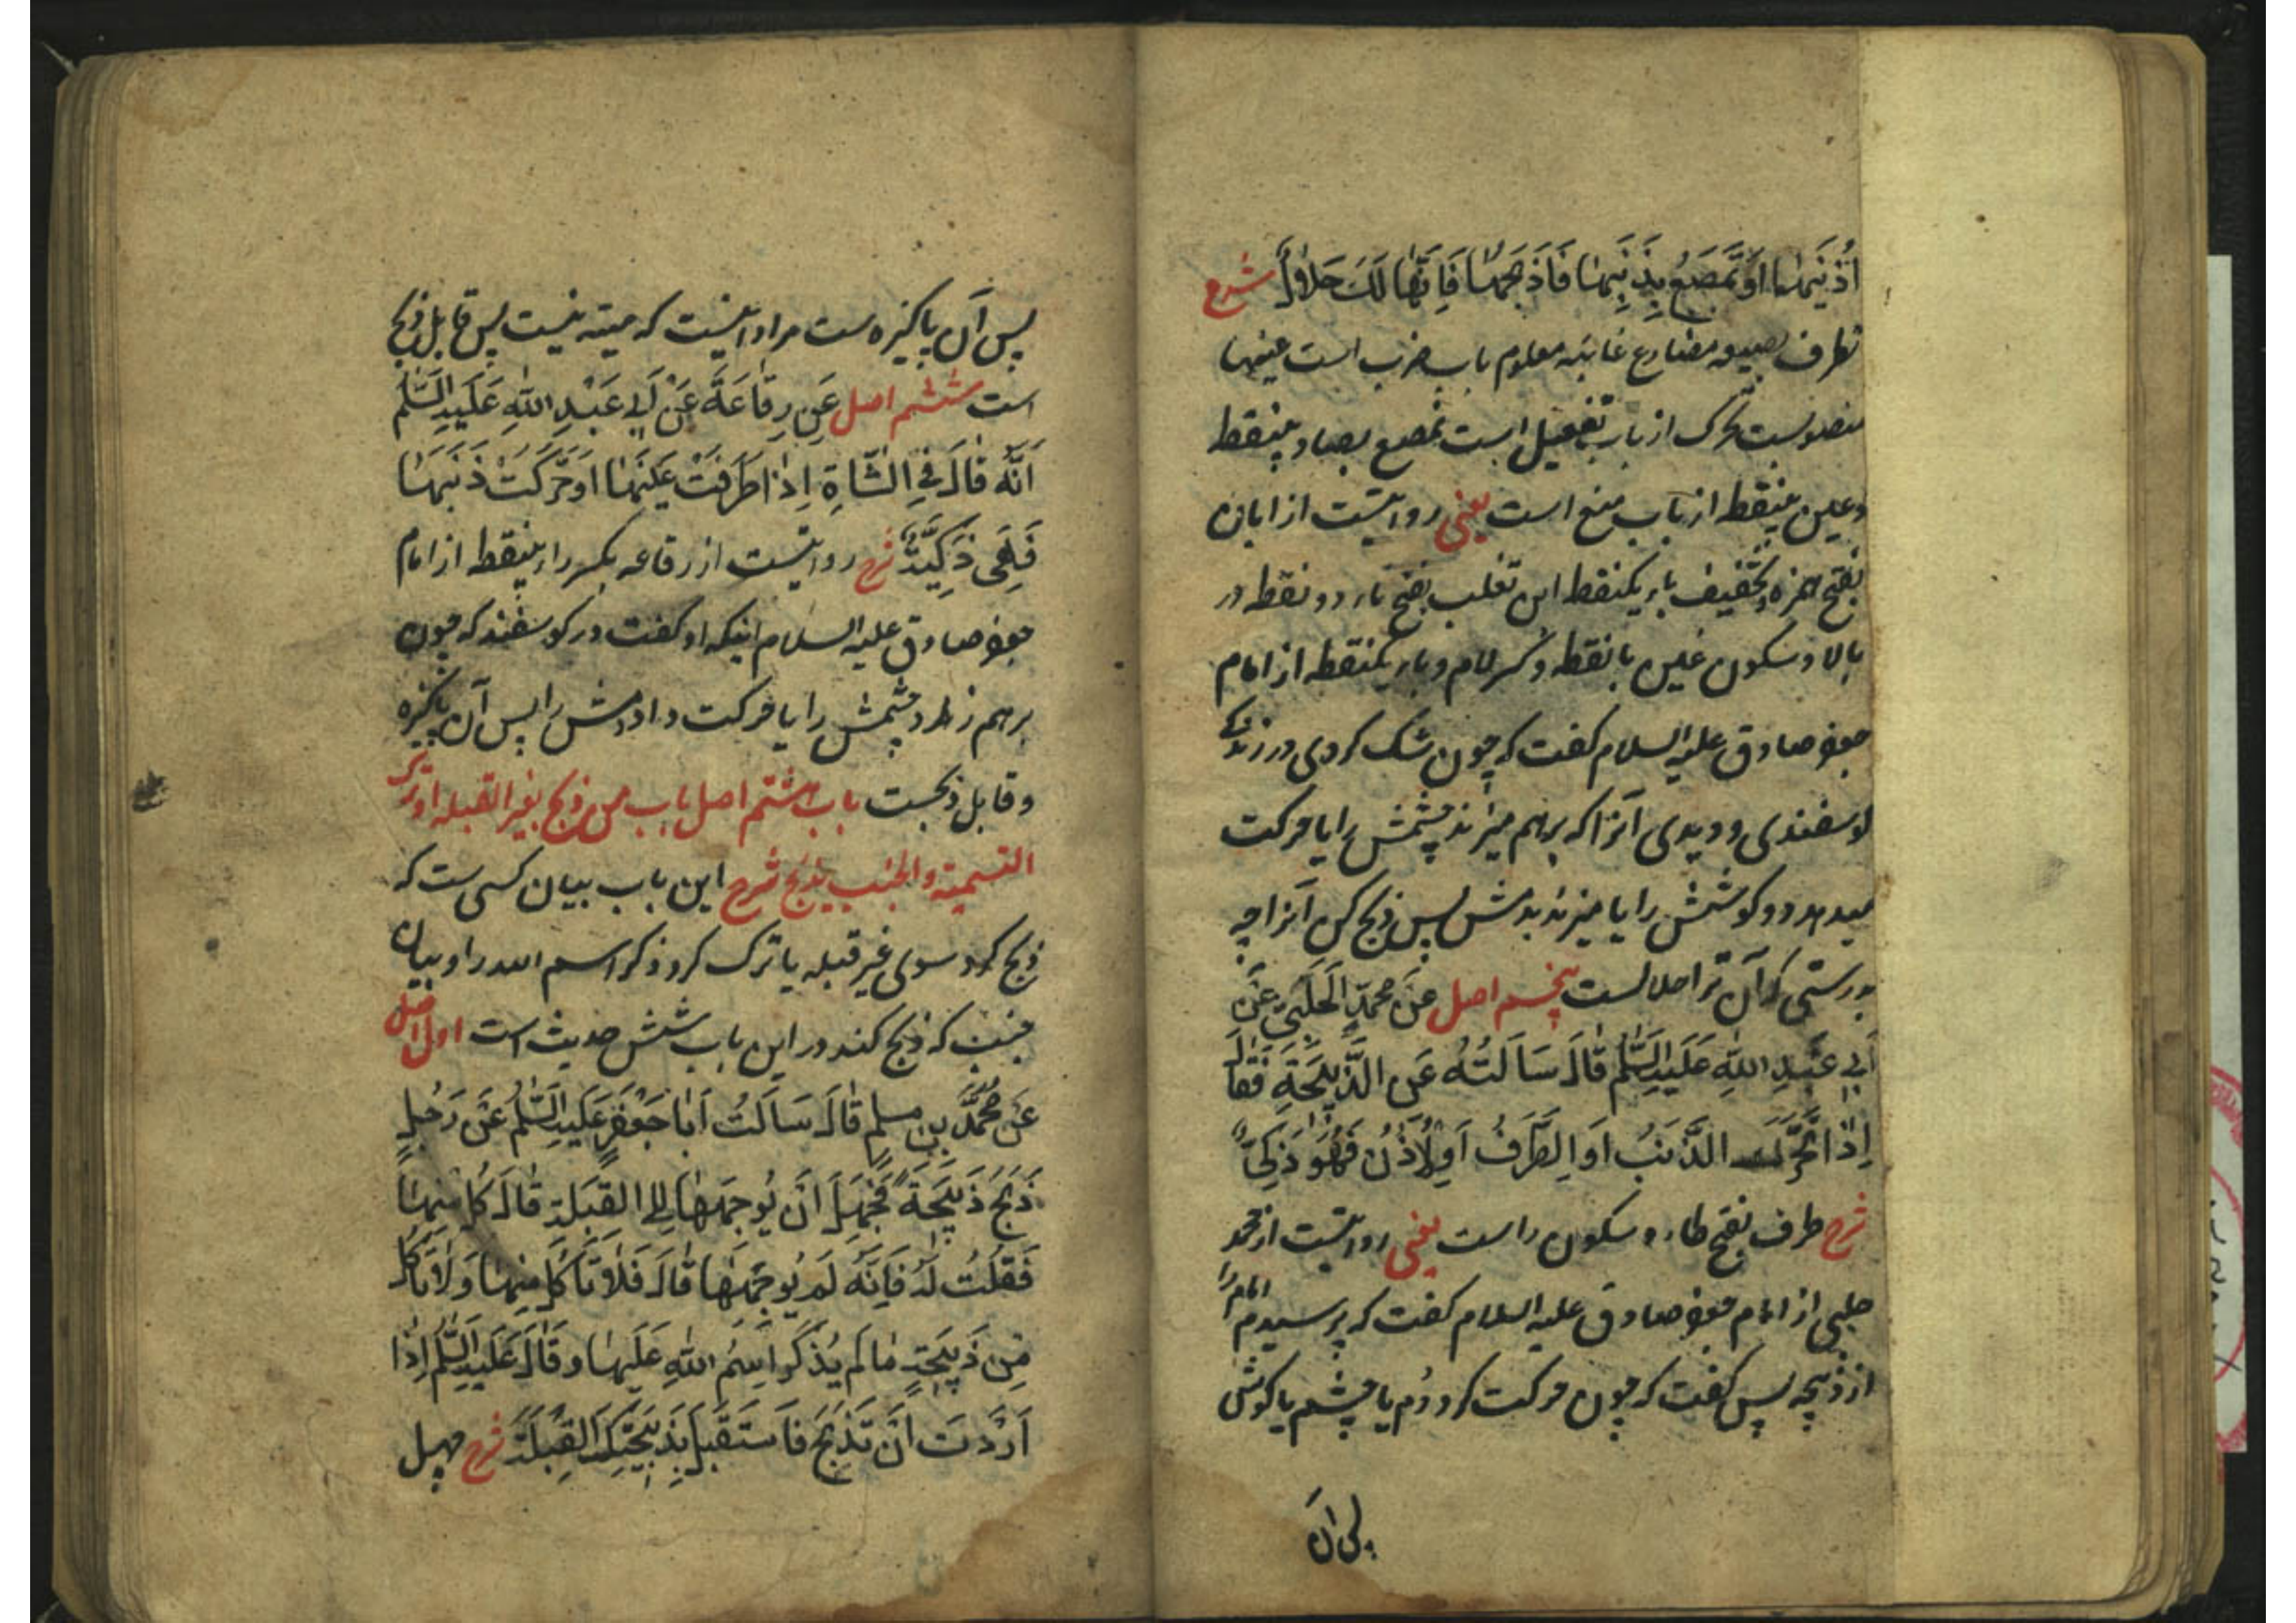 اُذُنَیْهَا اَوْ تَمْصَعُ بِذَنَبِهَا فَاذْبَحْهَا فَاِنَّهَا لَكَ حَلَالٌ شرح
تطرف بصیغه مضارع غائبه معلوم باب ضرب است عینها
منصوبست تحرک از باب تفعیل است تمصع بصاد بینقطه
وعین بینقطه از باب منع است یعنی روایتست از ابان
بفتح همزه وتخفیف باء یکنقطه ابن تغلب بفتح تاء دو نقطه در
بالا وسکون غین با نقطه وکسر لام وباء یکنقطه از امام
جعفر صادق علیه السلام گفت که چون شک کردی در زندگی
گوسفندی ودیدی آنرا که برهم میزند چشمش را یا حرکت
میدهد دو گوشش را یا میزند بدمش پس ذبح کن آنرا چه
بدرستی که آن ترا حلالست پنجم اصل عَنْ مُحَمَّدٍ الْحَلَبِيِّ عَنْ
اَبِي عَبْدِ اللّٰهِ عَلَيْهِ السَّلٰم قَالَ سَاَلْتُهُ عَنِ الذَّبِيْحَةِ فَقَالَ
اِذَا تَحَرَّكَ الذَّنَبُ اَوِ الطَّرْفُ اَوِ الْاُذُنُ فَهُوَ ذَكِيٌّ
شرح طرف بفتح طاء وسکون راست یعنی روایتست از محمد
حلبی از امام جعفر صادق علیه السلام گفت که پرسیدم امام را
از ذبیحه پس گفت که چون حرکت کرد دُم یا چشم یا گوش
پس آن
پس آن پاکیزه ست مراد اینست که میته نیست پس قابل ذبح
است ششم اصل عَنْ رِفَاعَةَ عَنْ اَبِي عَبْدِ اللّٰهِ عَلَيْهِ السَّلٰم
اَنَّهُ قَالَ فِي الشَّاةِ اِذَا طَرَفَتْ عَيْنَهَا اَوْ حَرَّكَتْ ذَنَبَهَا
فَهِيَ ذَكِيَّةٌ شرح روایتست از رفاعه بکسر راء بینقطه از امام
جعفر صادق علیه السلام اینکه او گفت در گوسفند که چون
برهم زند چشمش را یا حرکت داد دمش را پس آن پاکیزه
وقابل ذبحست باب هشتم اصل باب من ذبح بغیر القبله او ترک
التسمیة والجنب یذبح شرح این باب بیان کسی ست که
ذبح کرد سوی غیر قبله یا ترک کرد ذکر اسم الله را وبیان
جنب که ذبح کند در این باب شش حدیث است اول اصل
عَنْ مُحَمَّدِ بْنِ مُسْلِمٍ قَالَ سَاَلْتُ اَبَا جَعْفَرٍ عَلَيْهِ السَّلٰمُ عَنْ رَجُلٍ
ذَبَحَ ذَبِيْحَةً فَجَهِلَ اَنْ يُوَجِّهَهَا اِلَى الْقِبْلَةِ قَالَ كُلْ مِنْهَا
فَقُلْتُ لَهُ فَاِنَّهُ لَمْ يُوَجِّهْهَا قَالَ فَلَا تَاْكُلْ مِنْهَا وَلَا تَاْكُلْ
مِنْ ذَبِيْحَةٍ مَا لَمْ يُذْكَرِ اسْمُ اللّٰهِ عَلَيْهَا وَقَالَ عَلَيْهِ السَّلٰمُ اِذَا
اَرَدْتَ اَنْ تَذْبَحَ فَاسْتَقْبِلْ بِذَبِيْحَتِكَ الْقِبْلَةَ شرح جهل